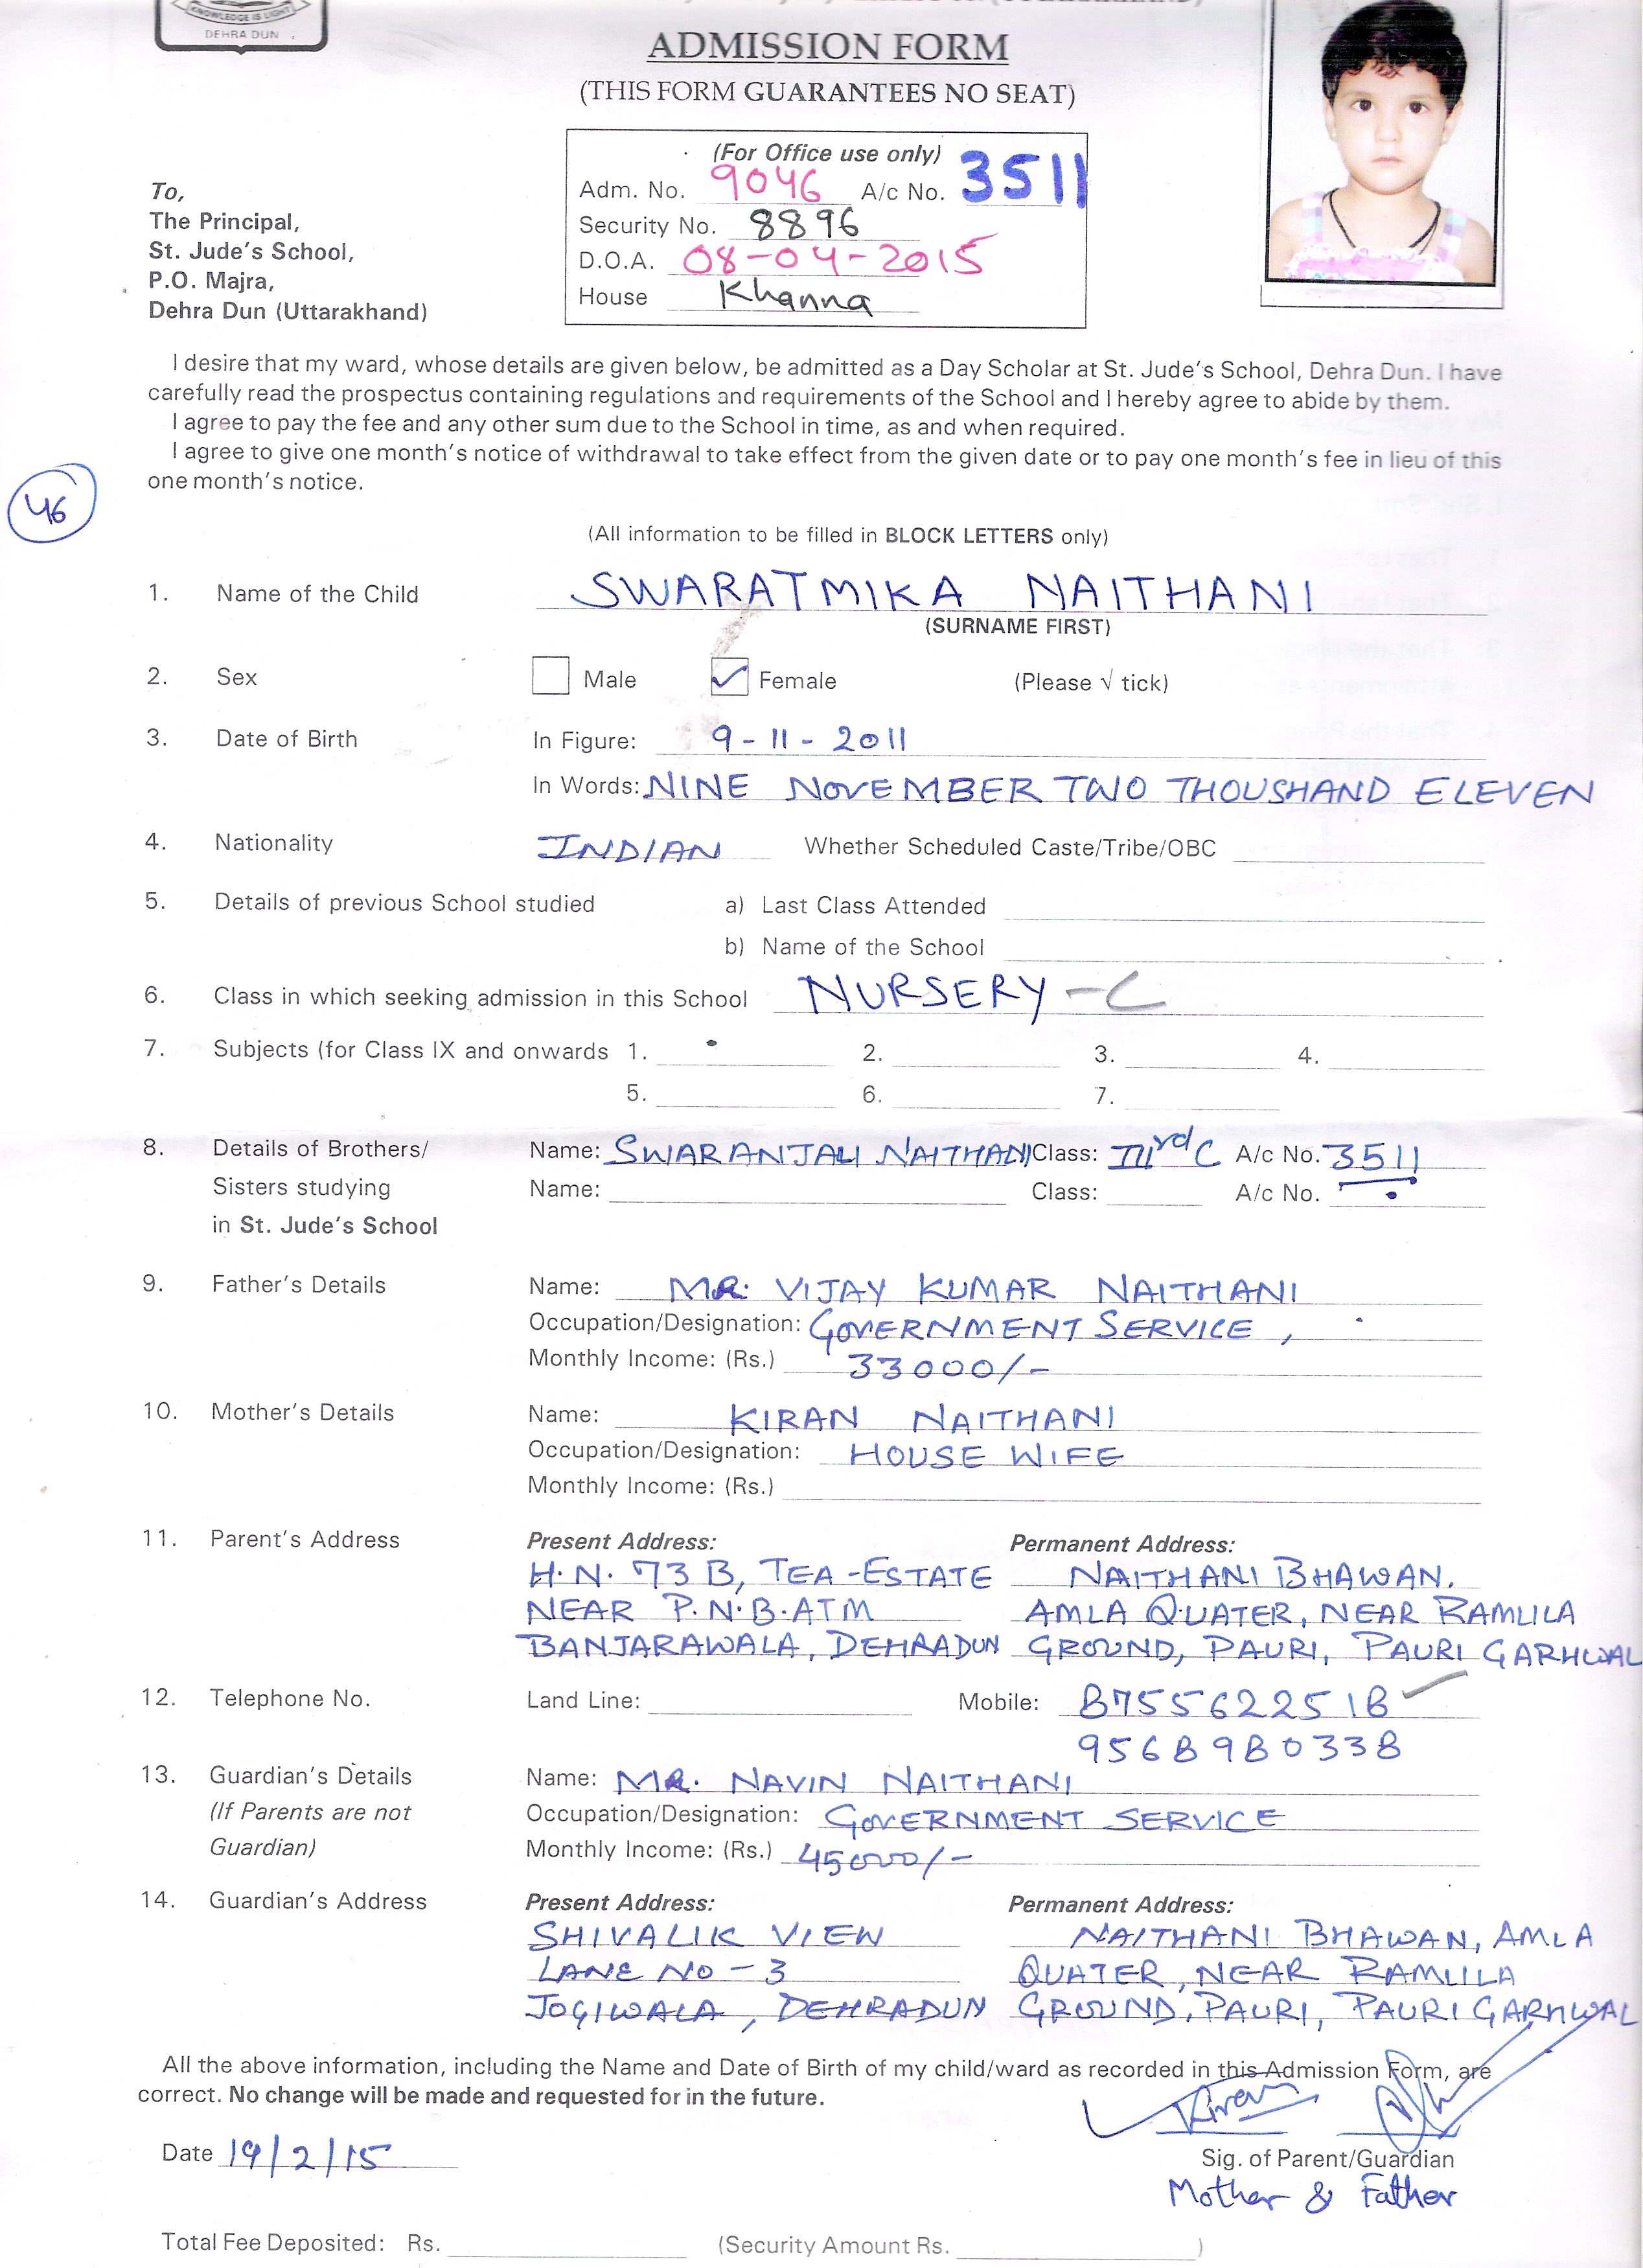 KNOWLEDGE IS LIGHT
DEHRA DUN
ADMISSION FORM
(THIS FORM GUARANTEES NO SEAT)
(For Office use only)
Adm. No. 9046 A/c No. 3511
Security No. 8896
D.O.A. 08-04-2015
House Khanna
To,
The Principal,
St. Jude's School,
P.O. Majra,
Dehra Dun (Uttarakhand)
I desire that my ward, whose details are given below, be admitted as a Day Scholar at St. Jude's School, Dehra Dun. I have
carefully read the prospectus containing regulations and requirements of the School and I hereby agree to abide by them.
I agree to pay the fee and any other sum due to the School in time, as and when required.
I agree to give one month's notice of withdrawal to take effect from the given date or to pay one month's fee in lieu of this
one month's notice.
46
(All information to be filled in BLOCK LETTERS only)
1. Name of the Child SWARATMIKA NAITHANI
(SURNAME FIRST)
2. Sex Male Female (Please √ tick)
3. Date of Birth In Figure: 9-11-2011
In Words: NINE NOVEMBER TWO THOUSHAND ELEVEN
4. Nationality INDIAN Whether Scheduled Caste/Tribe/OBC
5. Details of previous School studied a) Last Class Attended
b) Name of the School
6. Class in which seeking admission in this School NURSERY-C
7. Subjects (for Class IX and onwards 1. 2. 3. 4.
5. 6. 7.
8. Details of Brothers/ Name: SWARANJALI NAITHANI Class: IIIrd C A/c No. 3511
Sisters studying Name: Class: A/c No.
in St. Jude's School
9. Father's Details Name: MR. VIJAY KUMAR NAITHANI
Occupation/Designation: GOVERNMENT SERVICE,
Monthly Income: (Rs.) 33000/-
10. Mother's Details Name: KIRAN NAITHANI
Occupation/Designation: HOUSE WIFE
Monthly Income: (Rs.)
11. Parent's Address Present Address: Permanent Address:
H.N. 73 B, TEA-ESTATE NAITHANI BHAWAN,
NEAR P.N.B. ATM AMLA QUATER, NEAR RAMLILA
BANJARAWALA, DEHRADUN GROUND, PAURI, PAURI GARHWAL
12. Telephone No. Land Line: Mobile: 8755622518
9568980338
13. Guardian's Details Name: MR. NAVIN NAITHANI
(If Parents are not Occupation/Designation: GOVERNMENT SERVICE
Guardian) Monthly Income: (Rs.) 45000/-
14. Guardian's Address Present Address: Permanent Address:
SHIVALIK VIEW NAITHANI BHAWAN, AMLA
LANE NO-3 QUATER, NEAR RAMLILA
JOGIWALA, DEHRADUN GROUND, PAURI, PAURI GARHWAL
All the above information, including the Name and Date of Birth of my child/ward as recorded in this Admission Form, are
correct. No change will be made and requested for in the future.
Kiran
Date 19/2/15
Sig. of Parent/Guardian
Mother & Father
Total Fee Deposited: Rs. (Security Amount Rs. )